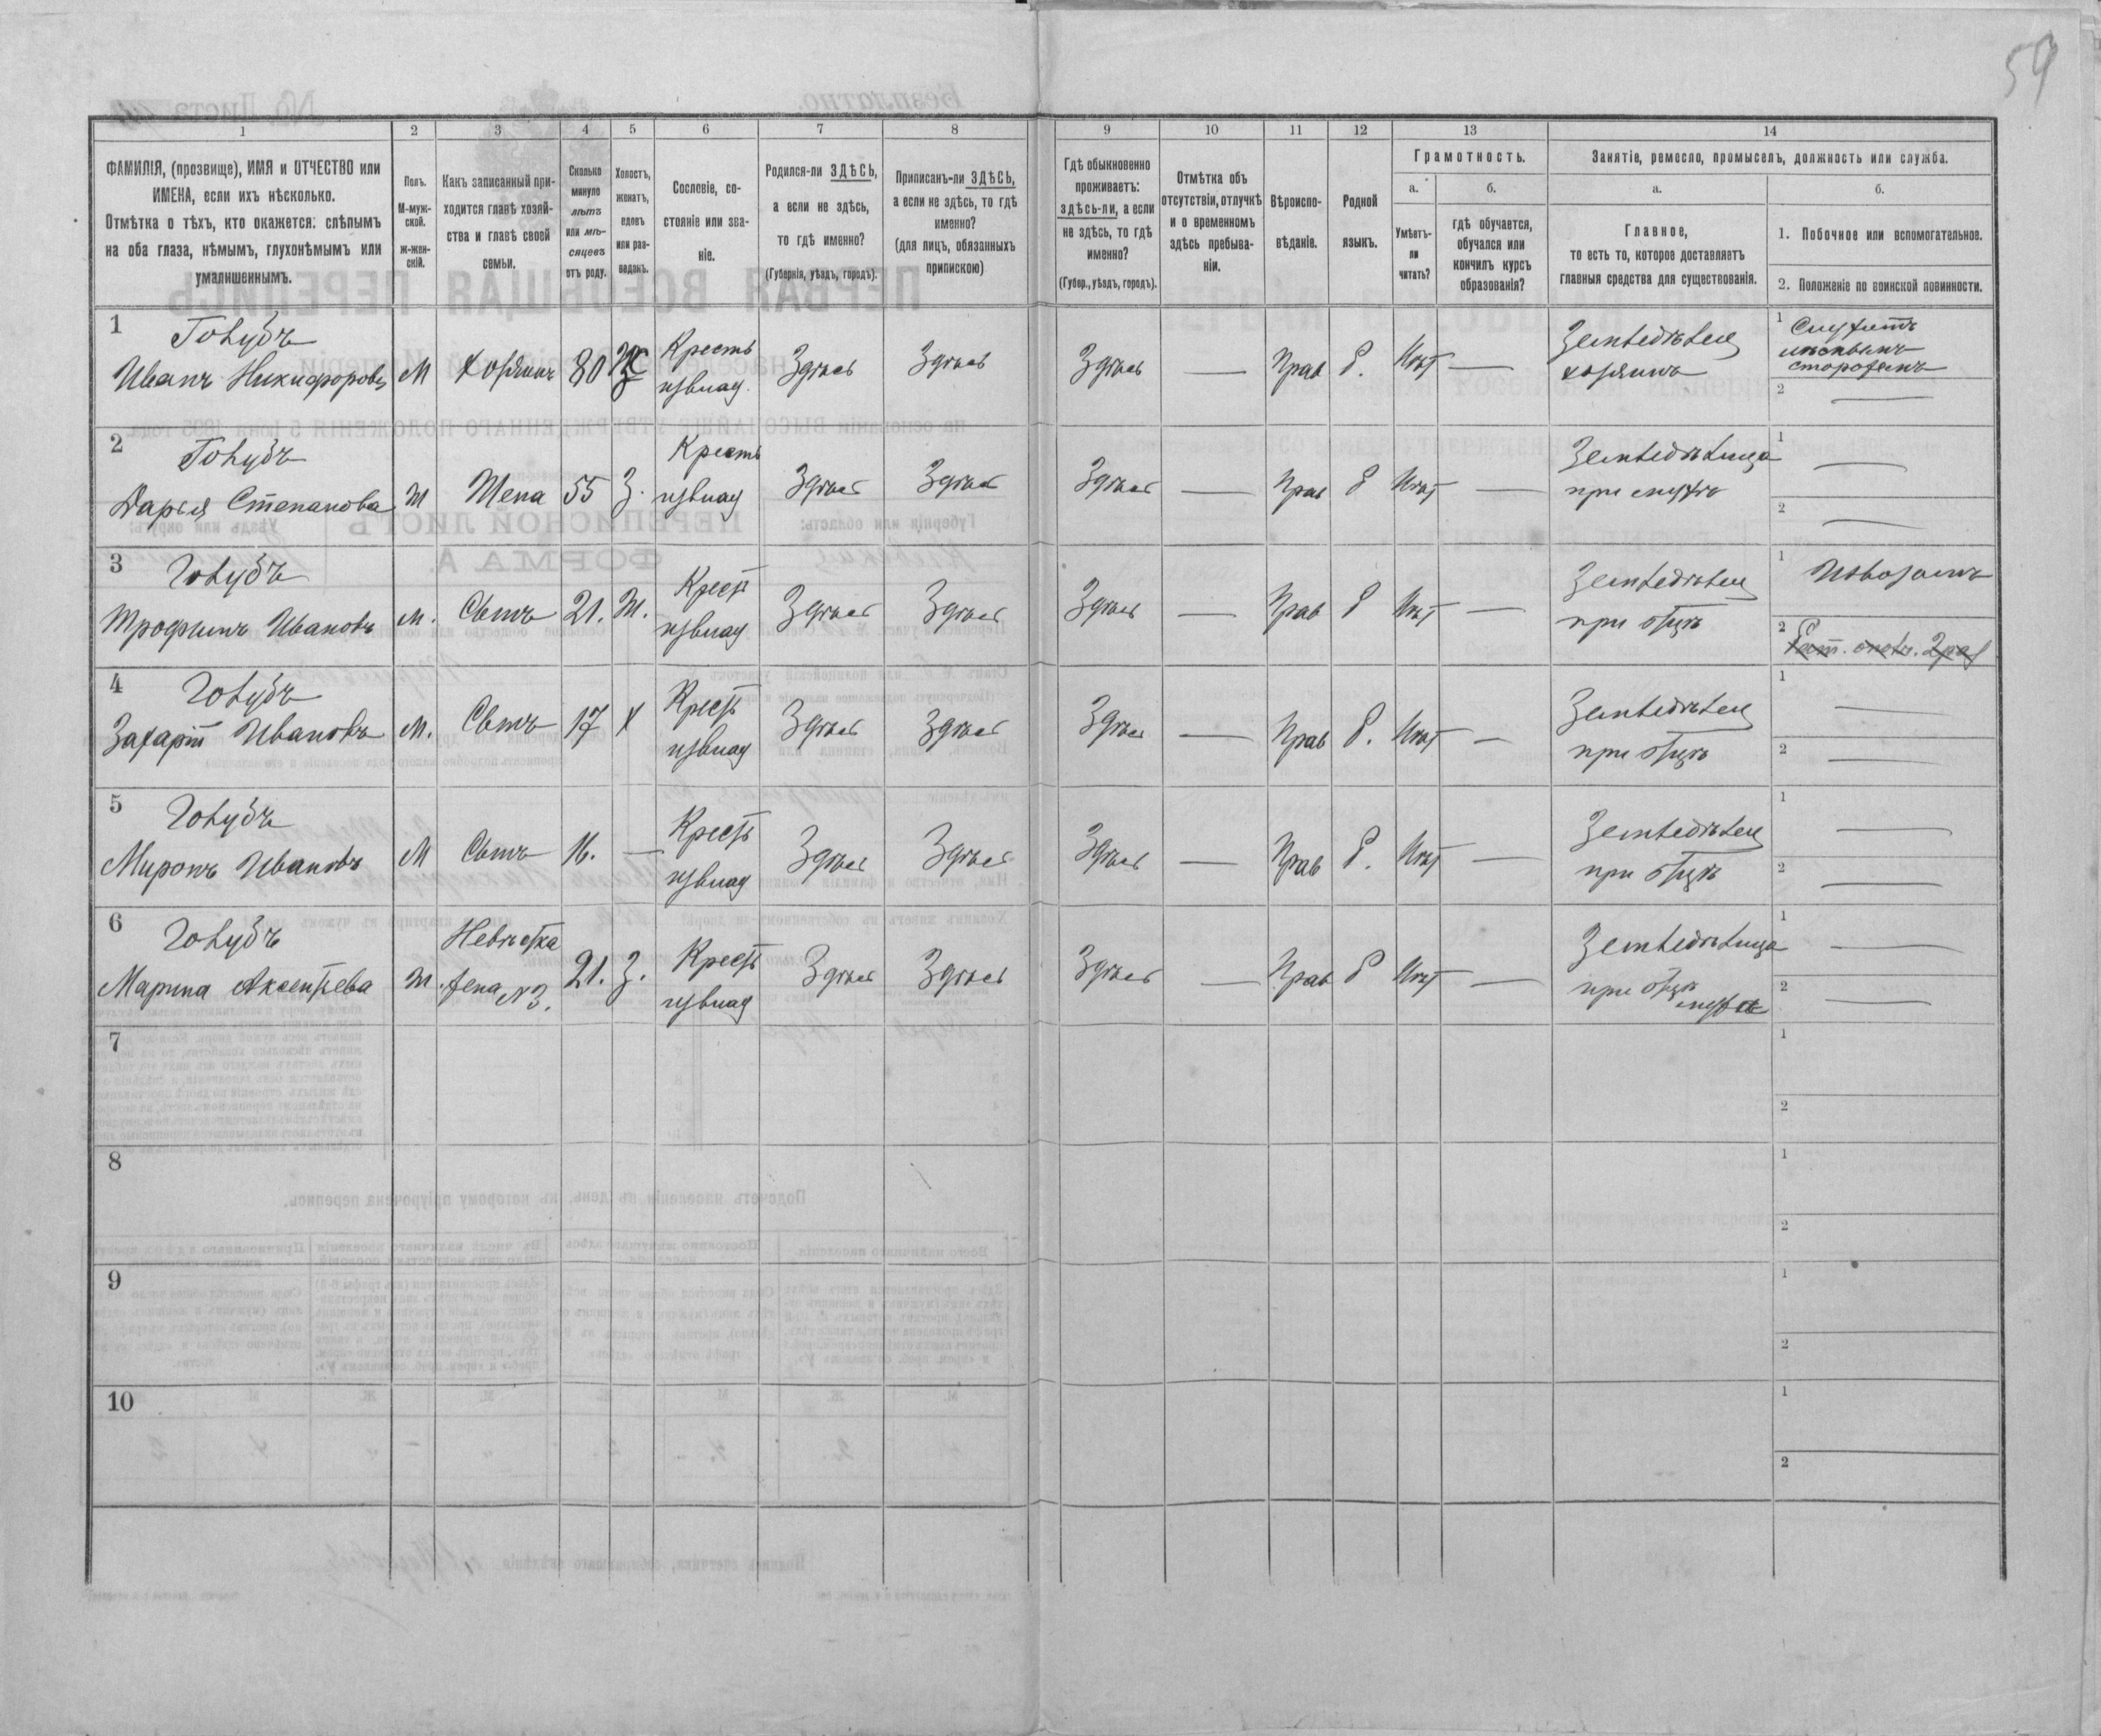 59
1 2 3 4 5 6 7 8 9 10 11 12 13 14
ФАМИЛІЯ, (прозвище), ИМЯ и ОТЧЕСТВО или
ИМЕНА, если ихъ нѣсколько.
Отмѣтка о тѣхъ, кто окажется: слѣпымъ
на оба глаза, нѣмымъ, глухонѣмымъ или
умалишеннымъ.
Полъ.
М-муж-
ской.
ж-жен-
скій.
Какъ записанный при-
ходится главѣ хозяй-
ства и главѣ своей
семьи.
Сколько
минуло
лѣтъ
или мѣ-
сяцевъ
отъ роду.
Холостъ,
женатъ,
вдовъ
или раз-
веденъ.
Сословіе, со-
стояніе или зва-
ніе.
Родился-ли ЗДѢСЬ,
а если не здѣсь,
то гдѣ именно?
(Губернія, уѣздъ, городъ).
Приписанъ-ли ЗДѢСЬ,
а если не здѣсь, то гдѣ
именно?
(для лицъ, обязанныхъ
припискою)
Гдѣ обыкновенно
проживаетъ:
здѣсь-ли, а если
не здѣсь, то гдѣ
именно?
(Губер., уѣздъ, городъ).
Отмѣтка объ
отсутствіи, отлучкѣ
и о временномъ
здѣсь пребыва-
ніи.
Вѣроиспо-
вѣданіе.
Родной
языкъ.
Грамотность.
а.
Умѣетъ-
ли
читать?
б.
гдѣ обучается,
обучался или
кончилъ курсъ
образованія?
Занятіе, ремесло, промыселъ, должность или служба.
а.
Главное,
то есть то, которое доставляетъ
главныя средства для существованія.
б.
1. Побочное или вспомогательное.
2. Положеніе по воинской повинности.
1 Голубъ
Иванъ Никифоровъ М Хозяинъ 80 Ж Кресть
изъ влад. Здѣсь Здѣсь Здѣсь — Прав Р. Нѣт —
Земледѣлец
хозяинъ
1 Служитъ
лѣснымъ
сторожемъ
2 —
2 Голубъ
Дарья Степанова Ж Жена 55 З. Кресть
изъ влад Здѣсь Здѣсь Здѣсь — Прав Р Нѣт —
Земледѣлица
при мужѣ
1 —
2 —
3 Голубъ
Трофимъ Ивановъ М. Сынъ 21. Ж. Крест
изъ влад Здѣсь Здѣсь Здѣсь — Прав Р Нѣт —
Земледѣлец
при отцѣ
1 Извозомъ
2 Рат. опол. 2 раз
4 Голубъ
Захарій Ивановъ М. Сынъ 17 Х Крест
изъ влад Здѣсь Здѣсь Здѣсь — Прав Р. Нѣт —
Земледѣлец
при отцѣ
1 —
2 —
5 Голубъ
Миронъ Ивановъ М Сынъ 16. — Крест
изъ влад Здѣсь Здѣсь Здѣсь — Прав Р. Нѣт —
Земледѣлец
при отцѣ
1 —
2 —
6 Голубъ
Марина Аксентьева Ж. Невѣстка
жена N3. 21. З. Крест
изъ влад Здѣсь Здѣсь Здѣсь — Прав Р Нѣт —
Земледѣлица
при отцѣ
мужа
1 —
2 —
7
1
2
8
1
2
9
1
2
10
1
2